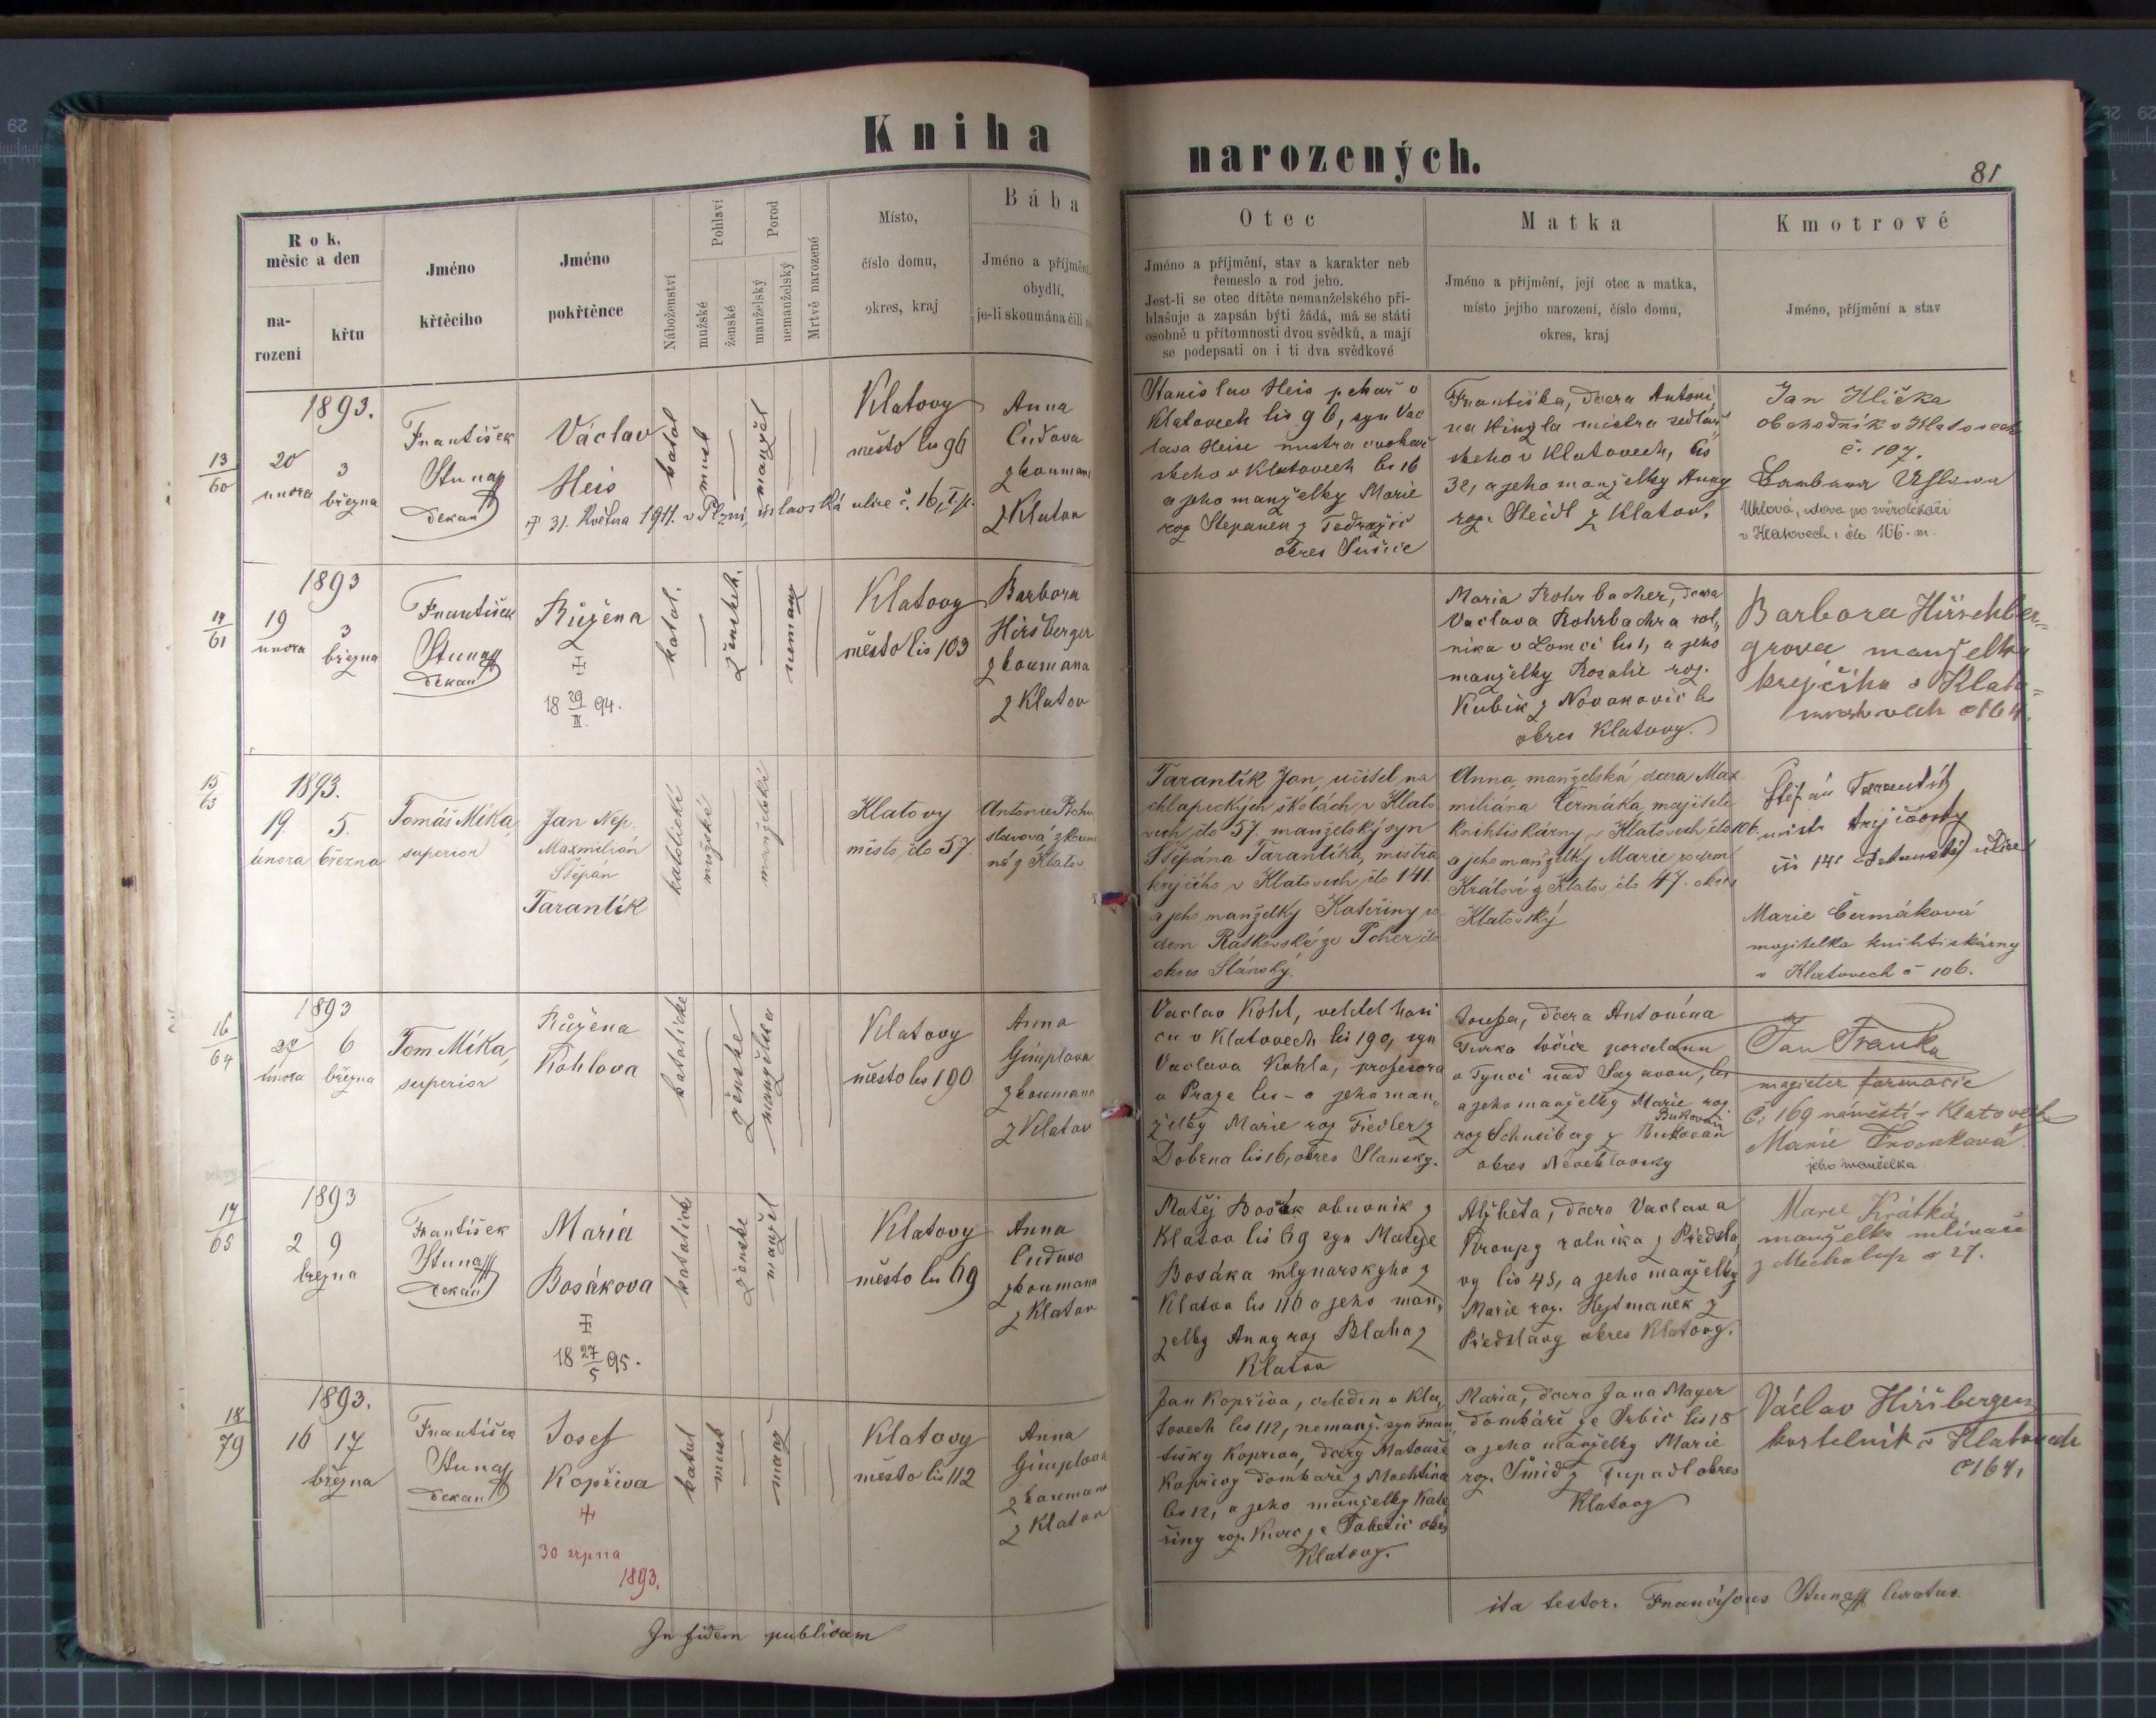 Kniha narozených.
81
Rok, měsíc a den
na-
rození
křtu
Jméno
křtěcího
Jméno
pokřtěnce
Náboženství
Pohlaví
mužské
ženské
Porod
manželský
nemanželský
Mrtvě narozené
Místo,
číslo domu,
okres, kraj
Bába
Jméno a příjmení,
obydlí,
je-li skoumána čili
Otec
Jméno a příjmení, stav a karakter neb
řemeslo a rod jeho.
Jest-li se otec dítěte nemanželského při-
hlašuje a zapsán býti žádá, má se státi
osobně u přítomnosti dvou svědků, a mají
se podepsati on i ti dva svědkové
Matka
Jméno a příjmení, její otec a matka,
místo jejího narození, číslo domu,
okres, kraj
Kmotrové
Jméno, příjmení a stav
13/60
1893.
20 února
3 března
František
Stunaff
děkan
Václav
Heis
31. května 1911. v Plzni, ulice č. 16, I. p.
katol
musk
manžel
Klatovy
město čis 96
Anna
Čudova
zkouman
z Klatov
Stanislav Heis pekař v
Klatovech čis 96, syn Vac
lava Heise mistra
skeho v Klatovech čis 16
a jeho manželky Marie
roz Stepanek z Tedražic
okres Sušice
Františka, dcera Antoni
na Kingla mistra sedlář
skeho v Klatovech, čis
32, a jeho manželky Anny
roz. Steidl z Klatov.
Jan Klička
obchodník v Klatovech
č. 107.
Uhlová, vdova po zvěrolékaři
v Klatovech, čís 106. m.
14/61
1893
19 února
3 března
František
Stunaff
děkan
Růžena
18 29/III. 94.
katol.
žensk.
nemanž
Klatovy
město čis 103
Barbora
Hiršberger
zkoumana
z Klatov
Maria Rohrbacher, dcera
Vaclava Rohrbachra rol„
nika v Lomci čis 1, a jeho
manželky Rosalie roz.
Kubik z Novakovic
okres Klatovy.
Barbora Hirschber=
grova manželka
krejčího v Klato=
vech č 164.
15/63
1893.
19. února
5. března
Tomáš Míka,
superior
Jan Nep.
Maxmilián
Štěpán
Tarantík
katolické
mužské
manželské
Klatovy
město čís 57
Antonie
z Klatov
Tarantík Jan, učitel na
chlapeckých školách v Klato
vech čís 57. manželský syn
Štěpána Tarantíka, mistra
krejčího v Klatovech, čís 141.
a jeho manželky Kateřiny ro
dem Ratkovské ze čís
okres Slánský.
Anna, manželská dcera Max
miliána Čermáka, majitele
knihtiskárny v Klatovech čís 106.
a jeho manželky Marie rodem
Králové z Klatov čís 47. okres
Klatovský
Štěpán Tarantík
mistr krejčovský
čís 141 ulice
Marie Čermáková
majitelka knihtiskárny
v Klatovech č 106.
16/64
1893
27 února
6 března
Tom. Míka,
superior
Růžena
Kohlova
katolicke
ženske
manželska
Klatovy
město čis 190
Anna
Gimplova
zkoumana
z Klatov
Vaclav Kohl, velitel hasi
cu v Klatovech čis 190, syn
Vaclava Kohla, profesora
v Praze čis – a jeho man„
želky Marie roz Fiedler z
Dobrna čis 16, okres Slansky.
Josefa, dcera Antonína
Turka točiče porculanu
v Tynci nad Sazavou, čis
a jeho manželky Marie roz
roz Schneiberg z Bukovan
Bukovan
okres Neveklovsky
Jan Franka
magister farmacie
č. 169 náměstí v Klatovech
Marie Franková
jeho manželka.
17/65
1893
2 9
března
František
Stunaff
děkan
Maria
Bosákova
18 27/5 95.
katolick
ženske
manžel
Klatovy
město čis 69
Anna
Čudova
zkoumana
z Klatov
Matěj Bosak obuvnik z
Klatov čis 69 syn Mateje
Bosáka mlynarskyho z
Klatov čis 110 a jeho man„
želky Anny roz Blaha z
Klatov
Alžběta, dcera Vaclava
Kroupy rolnika z Předsla
vy čis 45, a jeho manželky
Marie roz. Hejtmanek z
Předslavy okres Klatovy.
Marie Krátká,
manželka mlináře
z Měcholup č 27.
18/79
1893.
16 17
března
František
Stunaff
děkan
Josef
Kopřiva
30 srpna
1893.
katol
musk
manž
Klatovy
město čis 112
Anna
Gimplova
zkouman
z Klatov
Jan Kopřiva, čeledin v Kla„
tovech čis 112, nemanž. syn Fran„
tišky Kopriva, dcery Matouše
Koprivy domkaře z Mochtina
čis 12, a jeho manželky Kate„
řiny roz. ze okres
Klatovy.
Maria, dcera Jana Mayer
domkáře ze Srbic čis 18
a jeho manželky Marie
roz. Šmid z Tupadl okres
Klatovy
Václav Hiršberger
kostelník v Klatovech
č 164,
In fidem publicam
ita testor. Franciscus Stunaff Curatus.